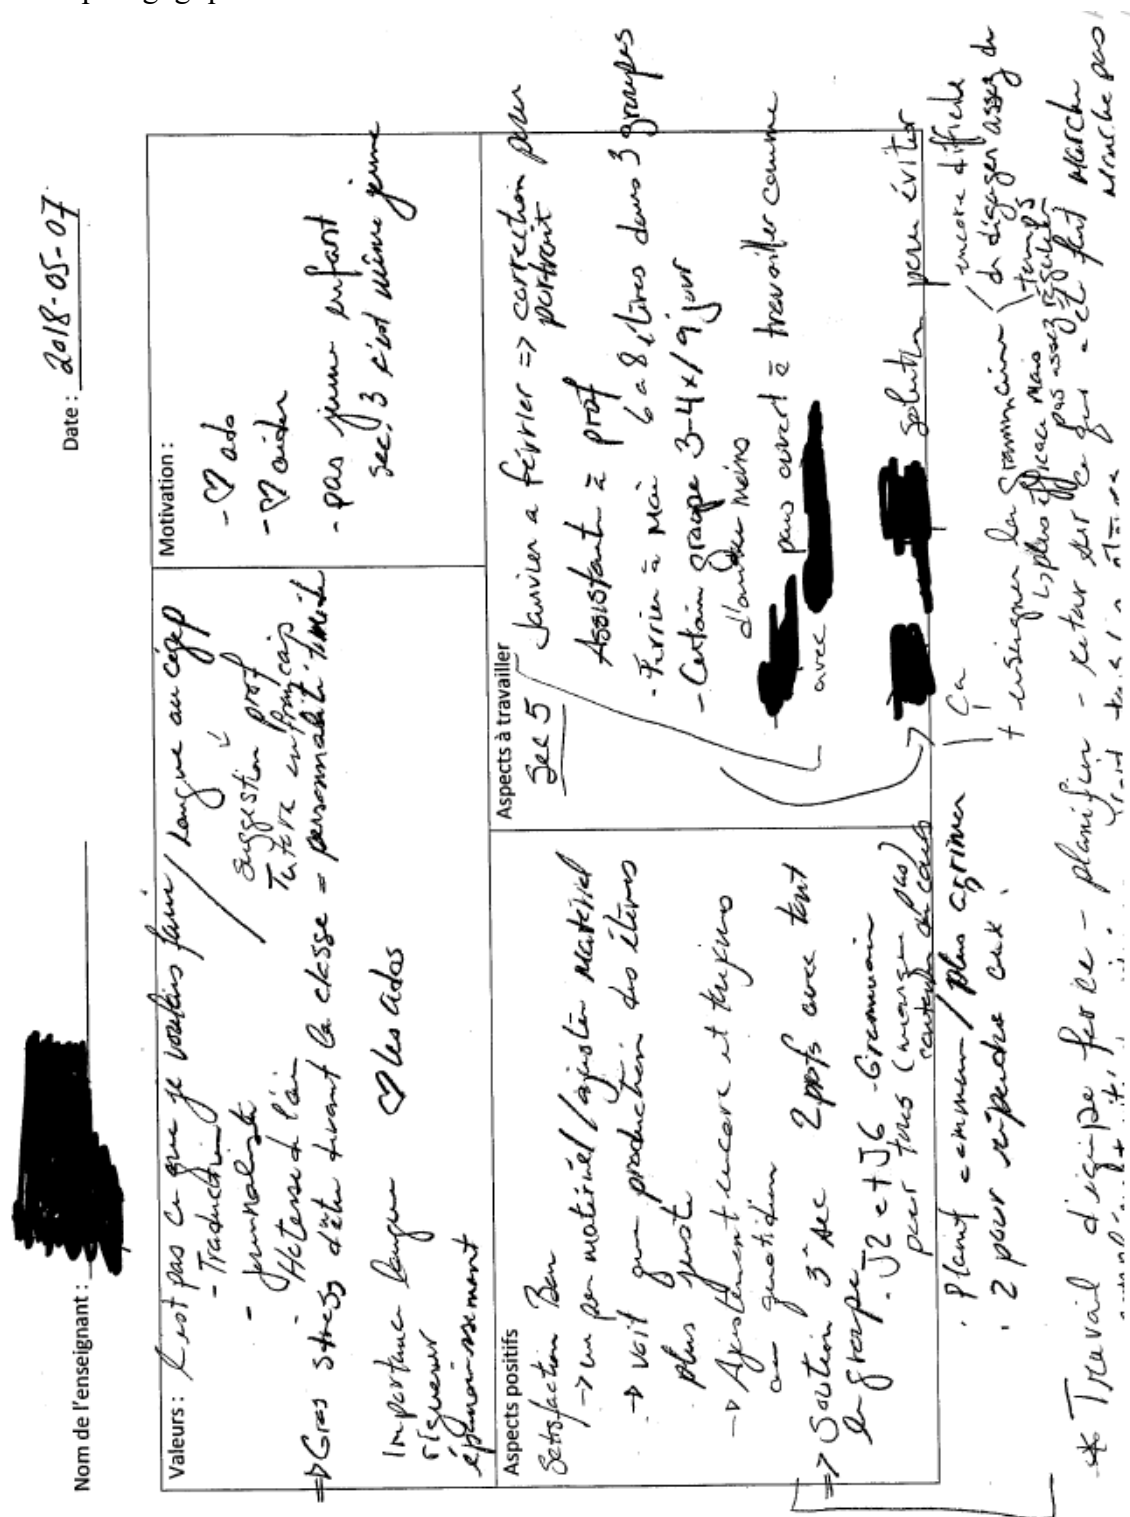 Nom de l'enseignant :
Date : 2018-05-07
Valeurs : c'est pas ce que je voulais faire / Langue au cégep
- Traduction
- journaliste
- Hôtesse de l'air
suggestion prof
Tuteur en français
=> Gros stress d'être devant la classe = personnalité timide
Importance langue ♡ les ados
rigueur
épanouissement
Motivation :
- ♡ ado
- ♡ aider
- pas jeune enfant
sec. 3 c'est même jeune
Aspects positifs
Satisfaction Ben
-> un peu matériel / ajuster matériel
-> voit que production des élèves
plus juste
-> Ajustement encore et toujours
au quotidien
=> Soutien 3e sec 2 profs avec tout
le groupe
. J2 et J6 - Grammaire
pour tous (manque pas)
contenu du cours
. Planif commun / plus arrimer
. 2 pour répondre aux
Aspects à travailler
Sec 5
Janvier à février => correction pour
portrait
Assistant à prof
- Février à Mai 6 à 8 élèves dans 3 groupes
- Certain groupe 3-4x/9 jour
d'autres moins
peu ouvert à travailler comme
avec
solution pour éviter
Ça
+ enseigner la grammaire
encore difficile
de dégager assez de
temps
plus efficace mais
pas assez régulier
* Travail d'équipe force - planifier - retour sur ce qui a été fait
Marche
Marche pas